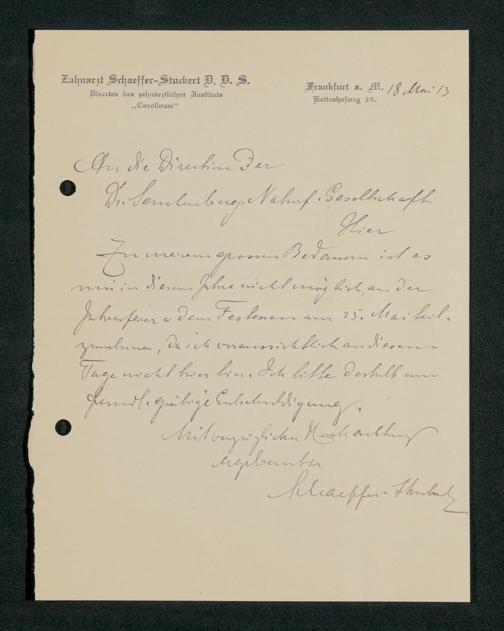 Zahnarzt Schaeffer-Stuckert D. D. S.
Director des zahnärztlichen Instituts
„Carolinum"
Frankfurt a. M. 18 Mai 13
Kettenhofweg 29.
An die Direction Der
Dr. Senckenberg. Naturf. Gesellschaft
Hier
Zu meinem grossen Bedauern ist es
mir in diesem Jahre nicht möglich, an der
Jahresfeier u dem Festessen am 25. Mai teil-
zunehmen, da ich voraussichtlich an diesem
Tage nicht hier bin. Ich bitte deshalb um
gütige Entschuldigung.
Mit vorzüglicher Hochachtung
ergebenster
Schaeffer-Stuckert